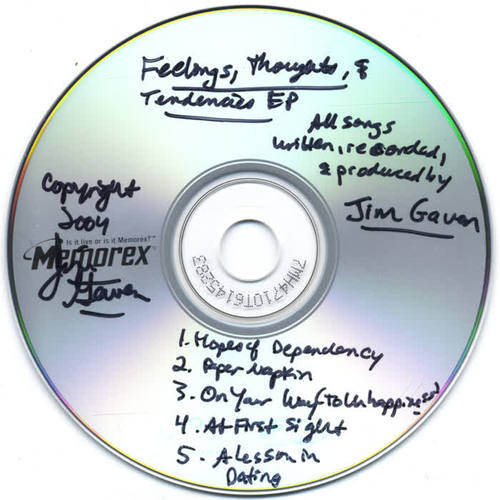 Feelings, Thoughts, &
Tendencies EP
All songs
written, recorded,
& produced by
Jim Gaven
Copyright
2004
Jim
Gaven
Is it live or is it Memorex?™
Memorex
7MH4710T6145283
1. Hopes of Dependency
2. Paper Napkin
3. On Your Way To Unhappiness
4. At First Sight
5. A Lesson in
Dating